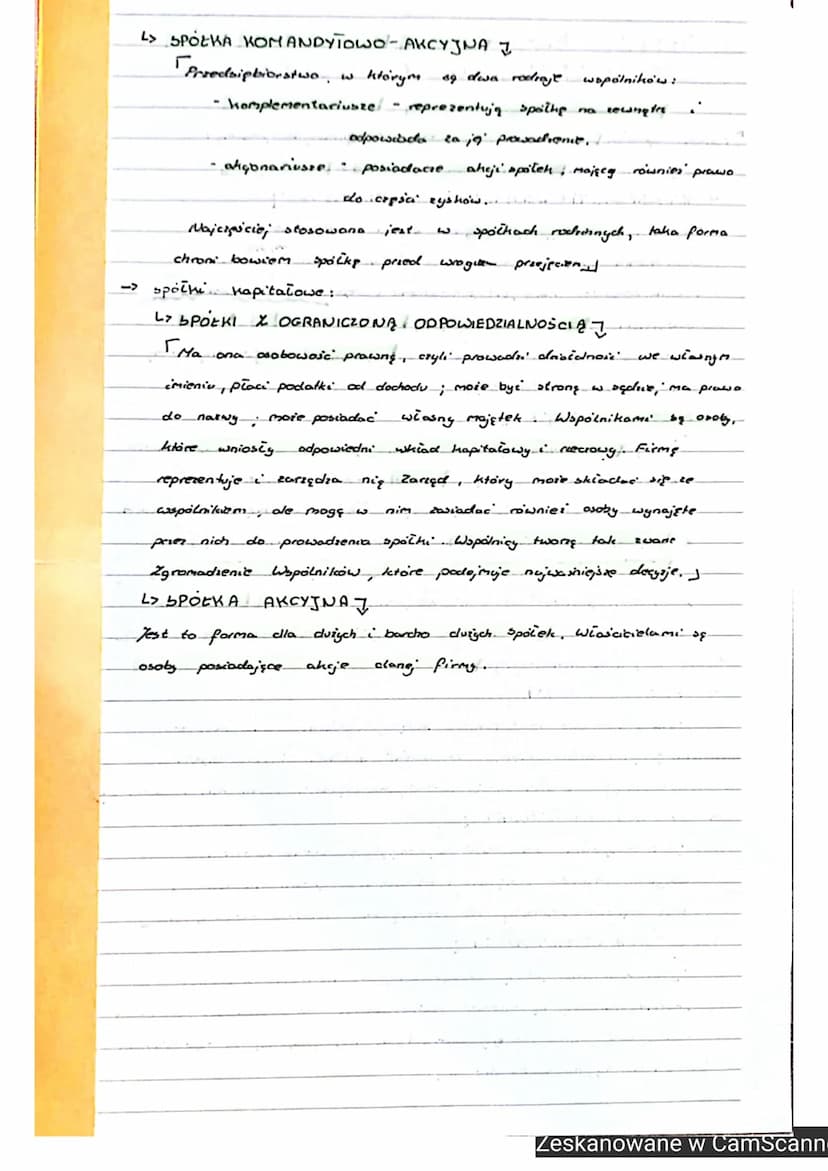 ↳ SPÓŁKA KOMANDYTOWO-AKCYJNA
Przedsiębiorstwo, w którym są dwa rodzaje wspólników:
- komplementariusze - reprezentują spółkę na zewnątrz i
odpowiada za jej prowadzenie.
- akcjonariusze - posiadacze akcji spółek, mający również prawo
do części zysków.
Najczęściej stosowana jest w spółkach rodzinnych, taka forma
chroni bowiem spółkę przed wrogim przejęciem
→ spółki kapitałowe:
↳ SPÓŁKI Z OGRANICZONĄ ODPOWIEDZIALNOŚCIĄ
Ma ona osobowość prawną, czyli prowadzi działalność we własnym
imieniu, płaci podatki od dochodu; może być stroną w sądzie, ma prawo
do nazwy; może posiadać własny majątek. Wspólnikami są osoby,
które wniosły odpowiedni wkład kapitałowy i rzeczowy. Firmę
reprezentuje i zarządza nią Zarząd, który może składać się ze
wspólników, ale mogą w nim zasiadać również osoby wynajęte
przez nich do prowadzenia spółki. Wspólnicy tworzą tak zwane
Zgromadzenie Wspólników, które podejmuje najważniejsze decyzje.
↳ SPÓŁKA AKCYJNA
Jest to forma dla dużych i bardzo dużych spółek. Właścicielami są
osoby posiadające akcje danej firmy.
Zeskanowane w CamScann